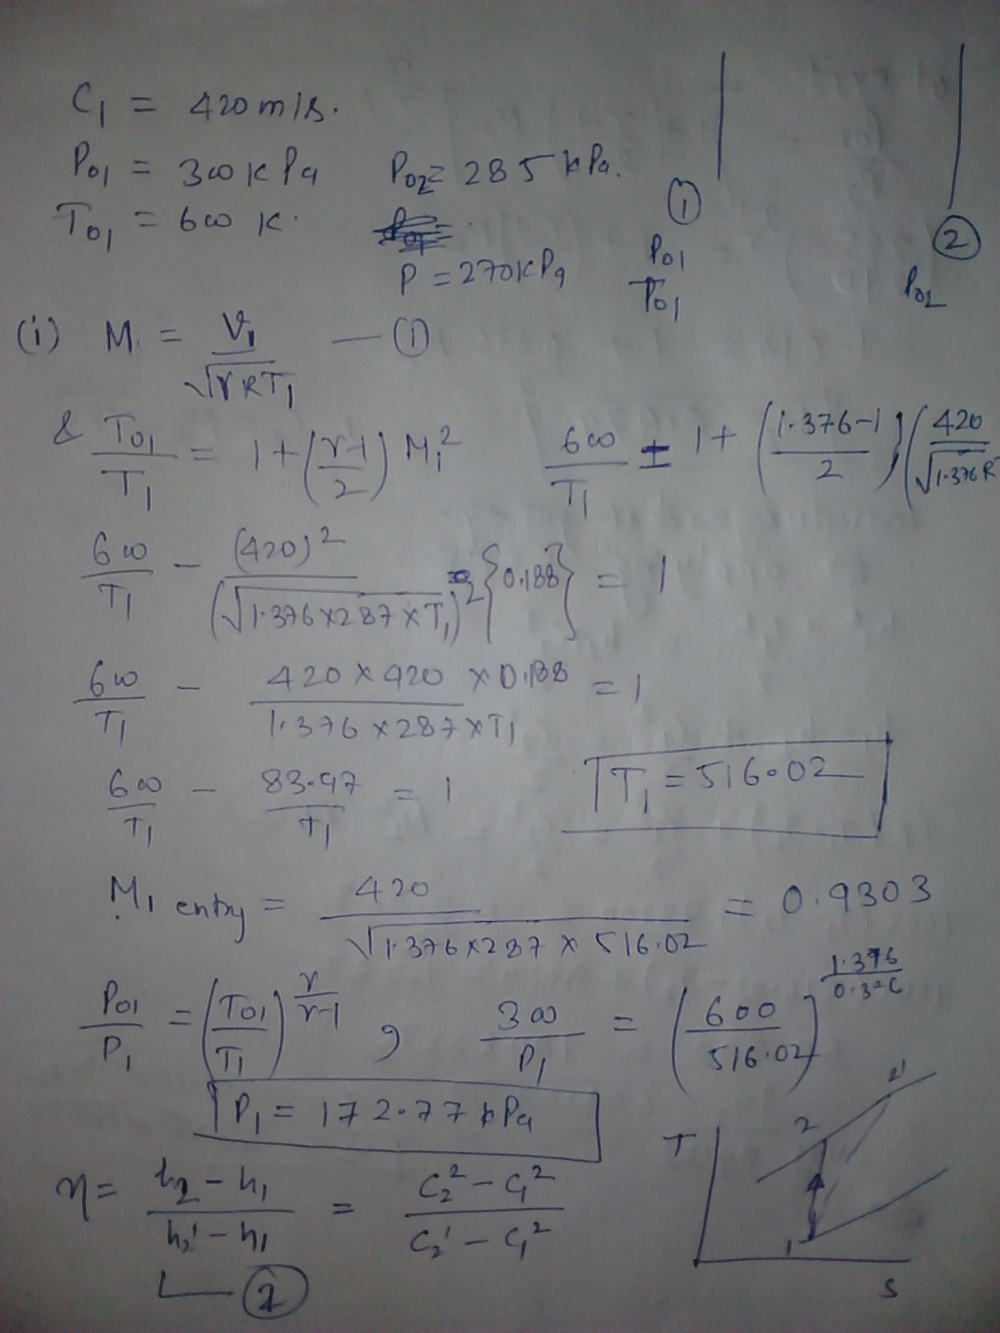 C₁ = 420 m/s.
P₀₁ = 300 kPa P₀₂ = 285 kPa.
T₀₁ = 600 K.
P = 270 kPa
① ②
P₀₁
T₀₁ P₀₂
(i) M₁ = V₁ / √(γRT₁) — ①
& T₀₁/T₁ = 1 + ((γ-1)/2) M₁² 600/T₁ = 1 + ((1.376-1)/2) (420/√1.376R
600/T₁ - (420)²/(√(1.376×287×T₁))² {0.188} = 1
600/T₁ - (420×420×0.188)/(1.376×287×T₁) = 1
600/T₁ - 83.97/T₁ = 1 T₁ = 516.02
M₁ entry = 420/√(1.376×287×516.02) = 0.9303
P₀₁/P₁ = (T₀₁/T₁)^(γ/(γ-1)) , 300/P₁ = (600/516.02)^(1.376/0.376)
P₁ = 172.77 kPa
η = (h₂ - h₁)/(h₂' - h₁) = (C₂² - C₁²)/(C₂' - C₁²)
②
T 2 2'
1
S